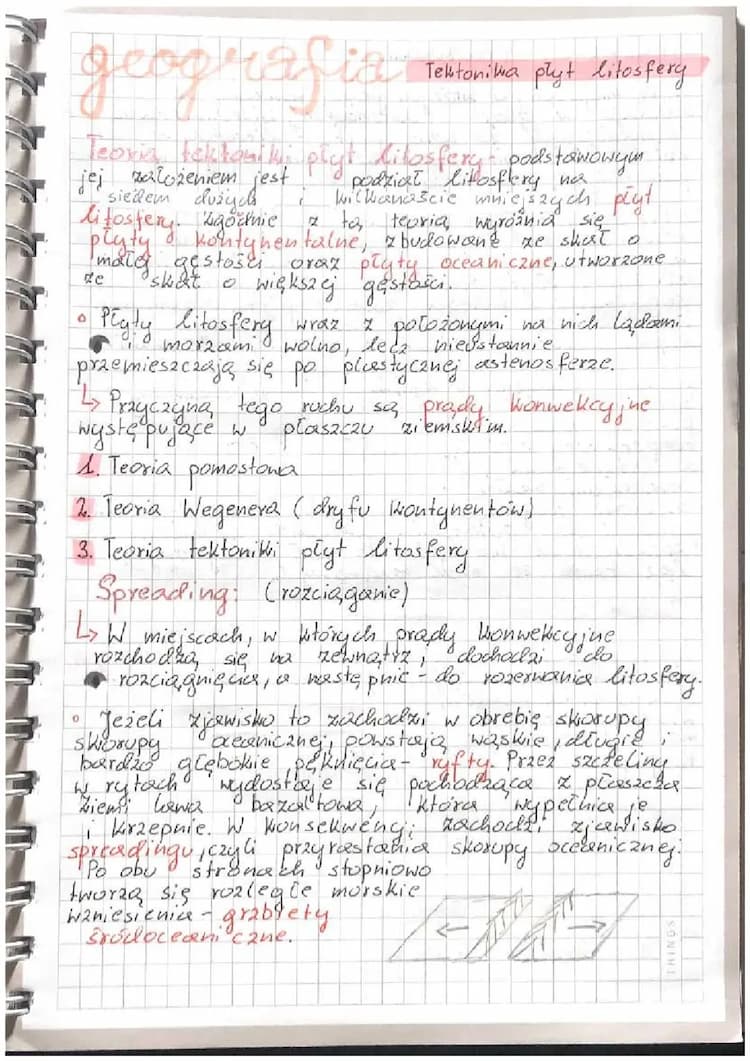 geografia Tektonika płyt litosfery
Teoria tektoniki płyt litosfery - podstawowym
jej założeniem jest podział litosfery na
siedem dużych i kilkanaście mniejszych płyt
litosfery. Zgodnie z tą teorią wyróżnia się
płyty kontynentalne, zbudowane ze skał o
małej gęstości oraz płyty oceaniczne, utworzone
ze skał o większej gęstości.
Płyty litosfery wraz z położonymi na nich lądami
i morzami wolno, lecz nieustannie
przemieszczają się po plastycznej astenosferze.
↳ Przyczyną tego ruchu są prądy konwekcyjne
występujące w płaszczu ziemskim.
1. Teoria pomostowa
2. Teoria Wegenera (dryfu kontynentów)
3. Teoria tektoniki płyt litosfery
Spreading: (rozciąganie)
↳ W miejscach, w których prądy konwekcyjne
rozchodzą się na zewnątrz, dochodzi do
rozciągnięcia, a następnie - do rozerwania litosfery.
Jeżeli zjawisko to zachodzi w obrębie skorupy
skorupy oceanicznej, powstają wąskie, długie i
bardzo głębokie pęknięcia - ryfty. Przez szczeliny
w rytach wydostaje się pochodząca z płaszcza
ziemi lawa bazaltowa, która wypełnia je
i krzepnie. W konsekwencji zachodzi zjawisko
spreadingu, czyli przyrastania skorupy oceanicznej.
Po obu stronach stopniowo
tworzą się rozległe morskie
wzniesienia - grzbiety
śródoceaniczne.
THINGS